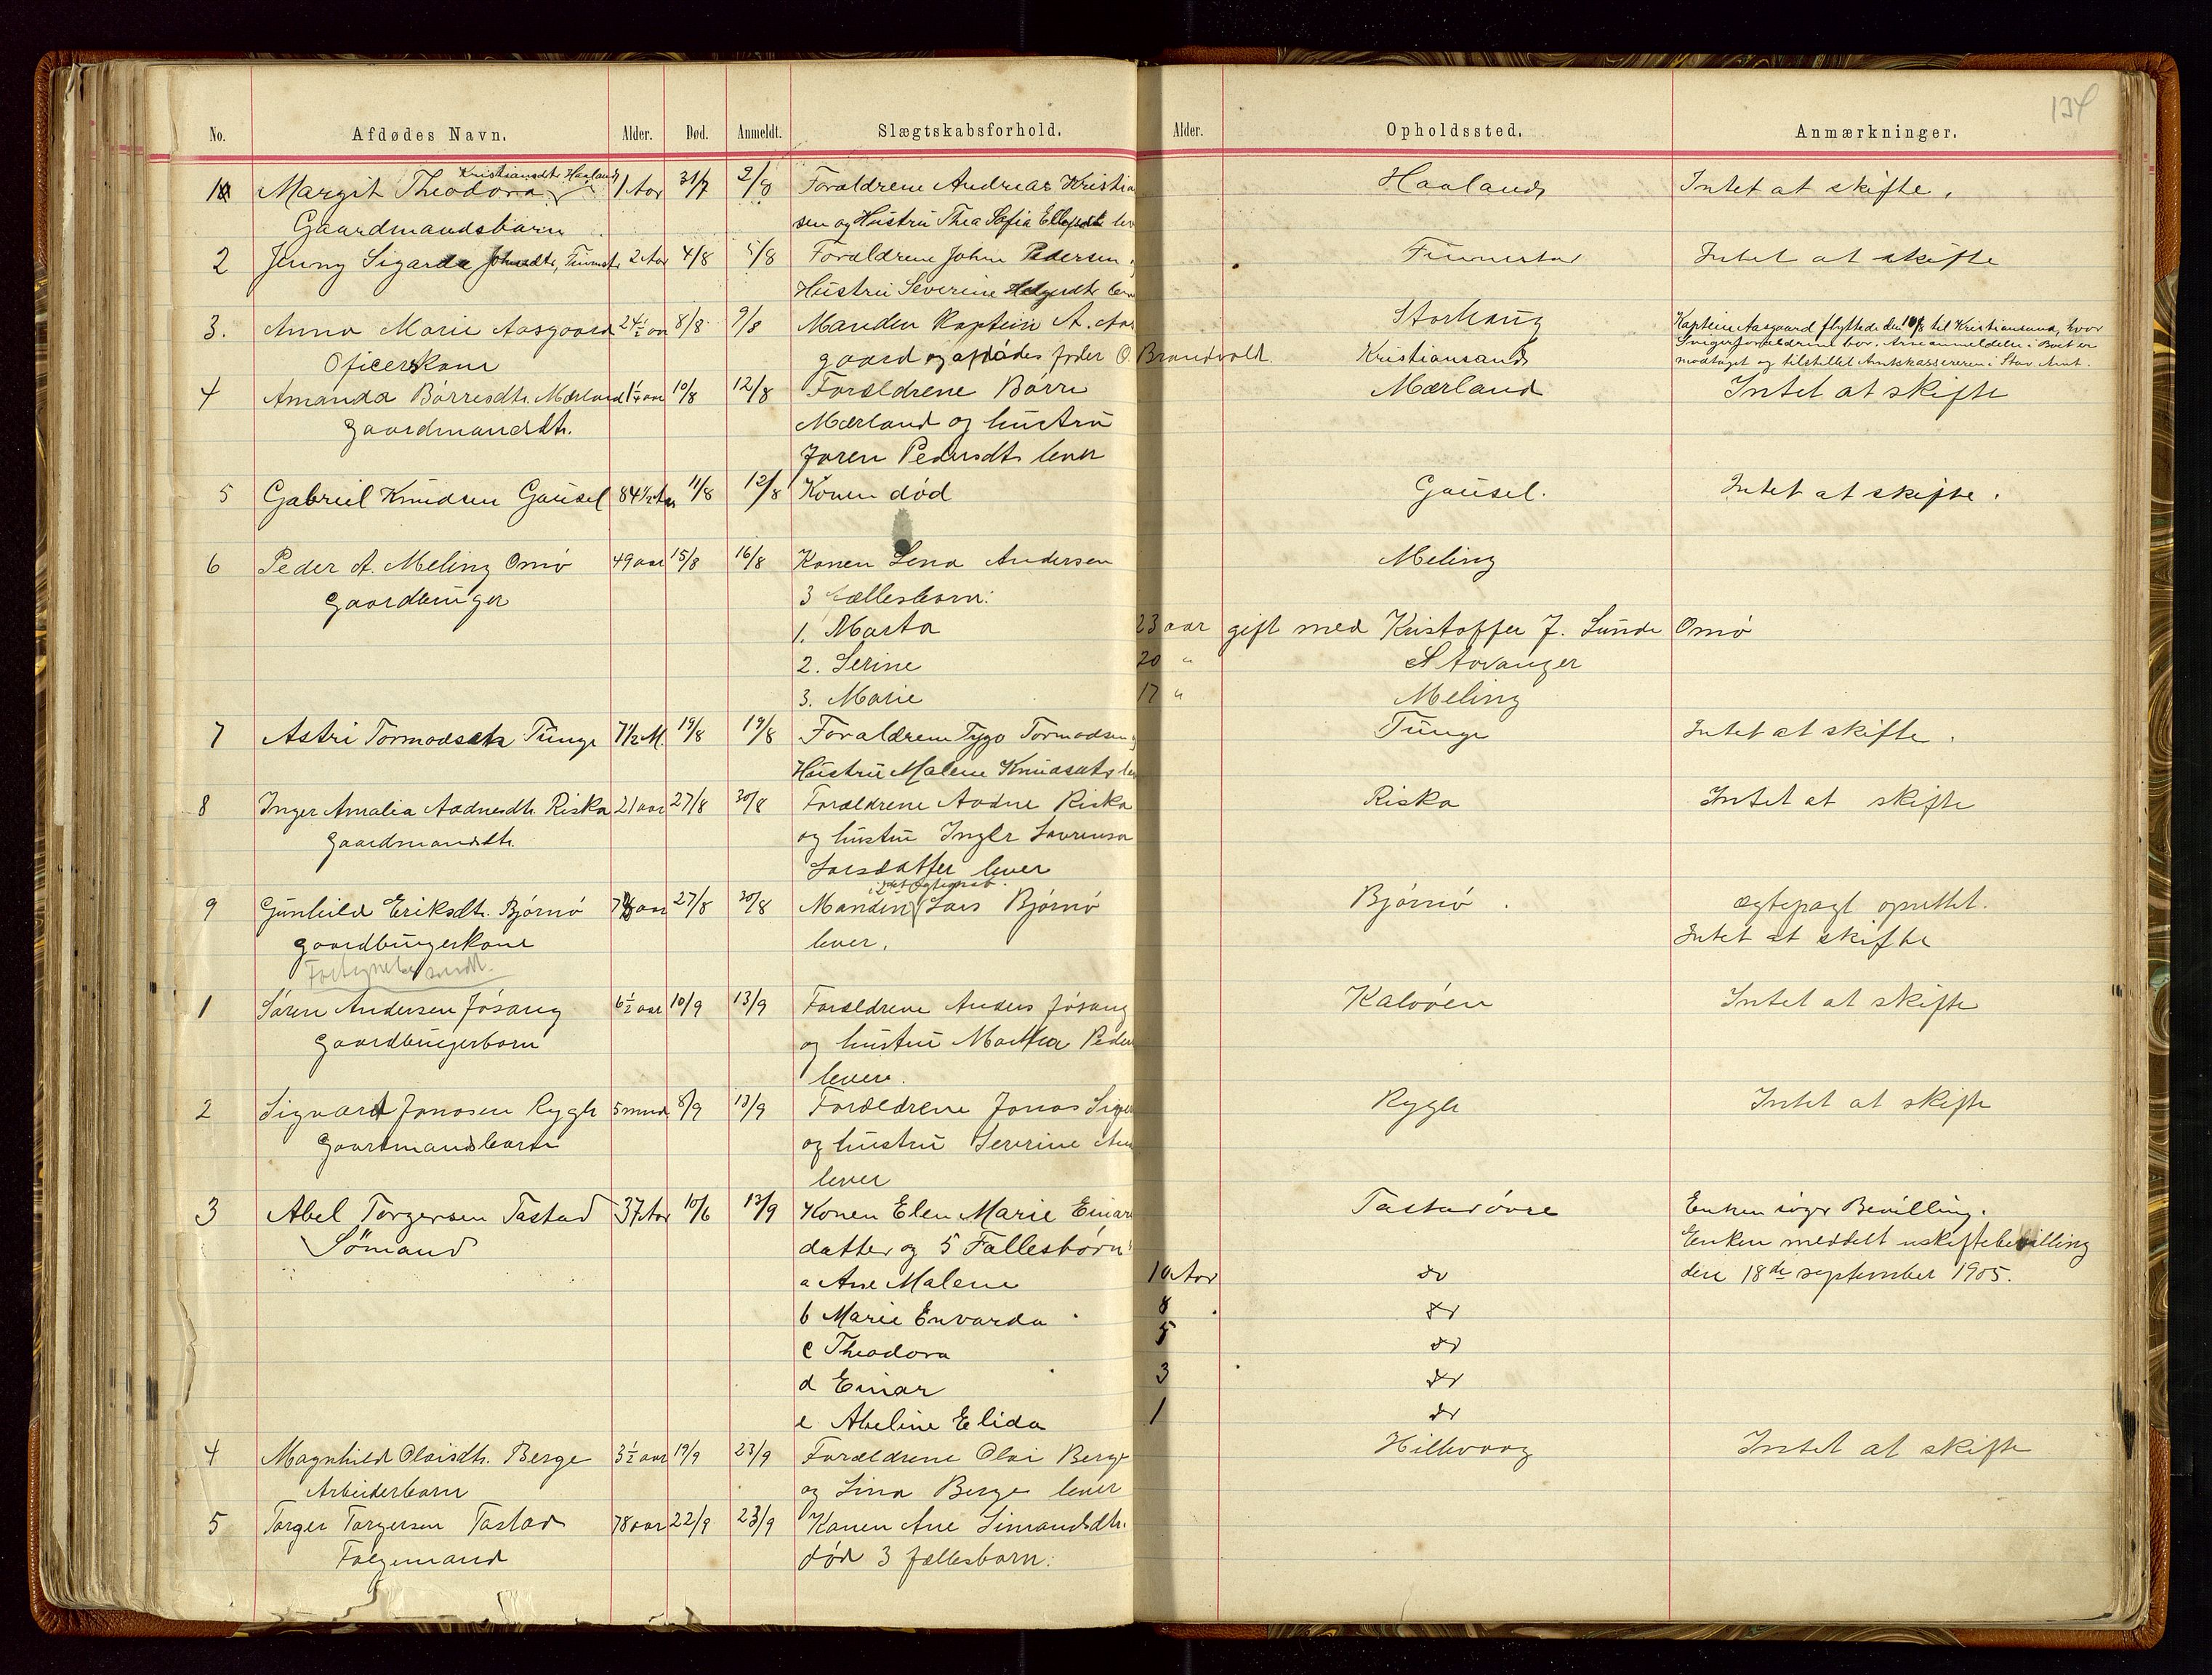 134
No. Afdødes Navn. Alder. Død. Anmeldt. Slægtskabsforhold. Alder. Opholdssted. Anmærkninger.
Kristiansdtr. Haaland
1 Margit Theodora 1 Aar 31/7 2/8 Forældrene Andreas Kristian Haaland Intet at skifte.
Gaardmandsbarn sen og Hustru Thea Sofia lev
2 Jenny Johnsdtr, 2 Aar 4/8 5/8 Forældrene John Pedersen Intet at skifte
Hustru Severine lev
3. Anna Marie Aasgaard 24½ aar 8/8 9/8 Manden Kaptein A. Aas Storhaug Kaptein Aasgaard flyttede den til Kristiansund, hvor
gaard og afdødes fader O. Brandvold Kristiansand Svigerforældrene bor. i Boet er
Oficerskone modtaget og tilstillet Amtskassereren i Stav. Amt.
4 Amanda Børresdtr. Mærland 1¼ aar 10/8 12/8 Forældrene Børre Mærland Intet at skifte
Gaardmandsdtr. Mærland og hustru
Joren Pedersdtr lever
5 Gabriel Knudsen Gausel 84½ Aar 11/8 12/8 Konen død Gausel. Intet at skifte.
6 Peder A. Meling Omø 49 aar 15/8 16/8 Konen Lena Andersen Meling
Gaardbruger 3 fællesbarn:
1. Marta 23 aar gift med Kristoffer J. Lunde Omø
2. Serine 20 " Stavanger
3. Marie 17 " Meling
7 Astri Tormodsdtr Tunge 7½ M. 19/8 19/8 Forældrene Tormodsen Tunge Intet at skifte.
Hustru Malene Knudsdtr lev
8 Inger Amalia Aadnesdtr. Riska 21 aar 27/8 30/8 Forældrene Aadne Riska Riska Intet at skifte
Gaardmandsdtr. og hustru Inger Lavrensa
Larsdatter lever
i 2det Egteskab.
9 Gunhild Eriksdtr. Bjørnø aar 27/8 30/8 Manden Lars Bjørnø Bjørnø. ægtepagt oprettet.
gaardbrugerkone lever. Intet at skifte
1 Søren Andersen Jøsang 6½ aar 10/9 13/9 Forældrene Anders Jøsang Kalvøen Intet at skifte
Gaardbrugerbarn og hustru Martha Peder
lever.
2 Sigvard Jonasen Rygh 5 mnd 8/9 13/9 Forældrene Jonas Rygh Intet at skifte
Gaardmandsbarn og hustru Severine
lever
3 Abel Torgersen Tastad 37 Aar 10/6 13/9 Konen Elen Marie Einar Tastad øvre Enken søger Bevilling.
Sømand datter og 5 Fællesbørn: Enken meddelt uskiftebevilling
a Ane Malene 10 Aar do den 18de september 1905.
b Marie Envarda 8 do
c Theodora 5 do
d Einar 3 do
e Abeline Elida 1 do
4 Magnhild Olaisdtr. Berge 3½ aar 19/9 23/9 Forældrene Olai Berge Hillevaag Intet at skifte
Arbeiderbarn og Lina Berge lever
5 Torger Torgersen Tastad 78 aar 22/9 23/9 Konen Ane Simonsdtr.
død 3 fællesbarn: